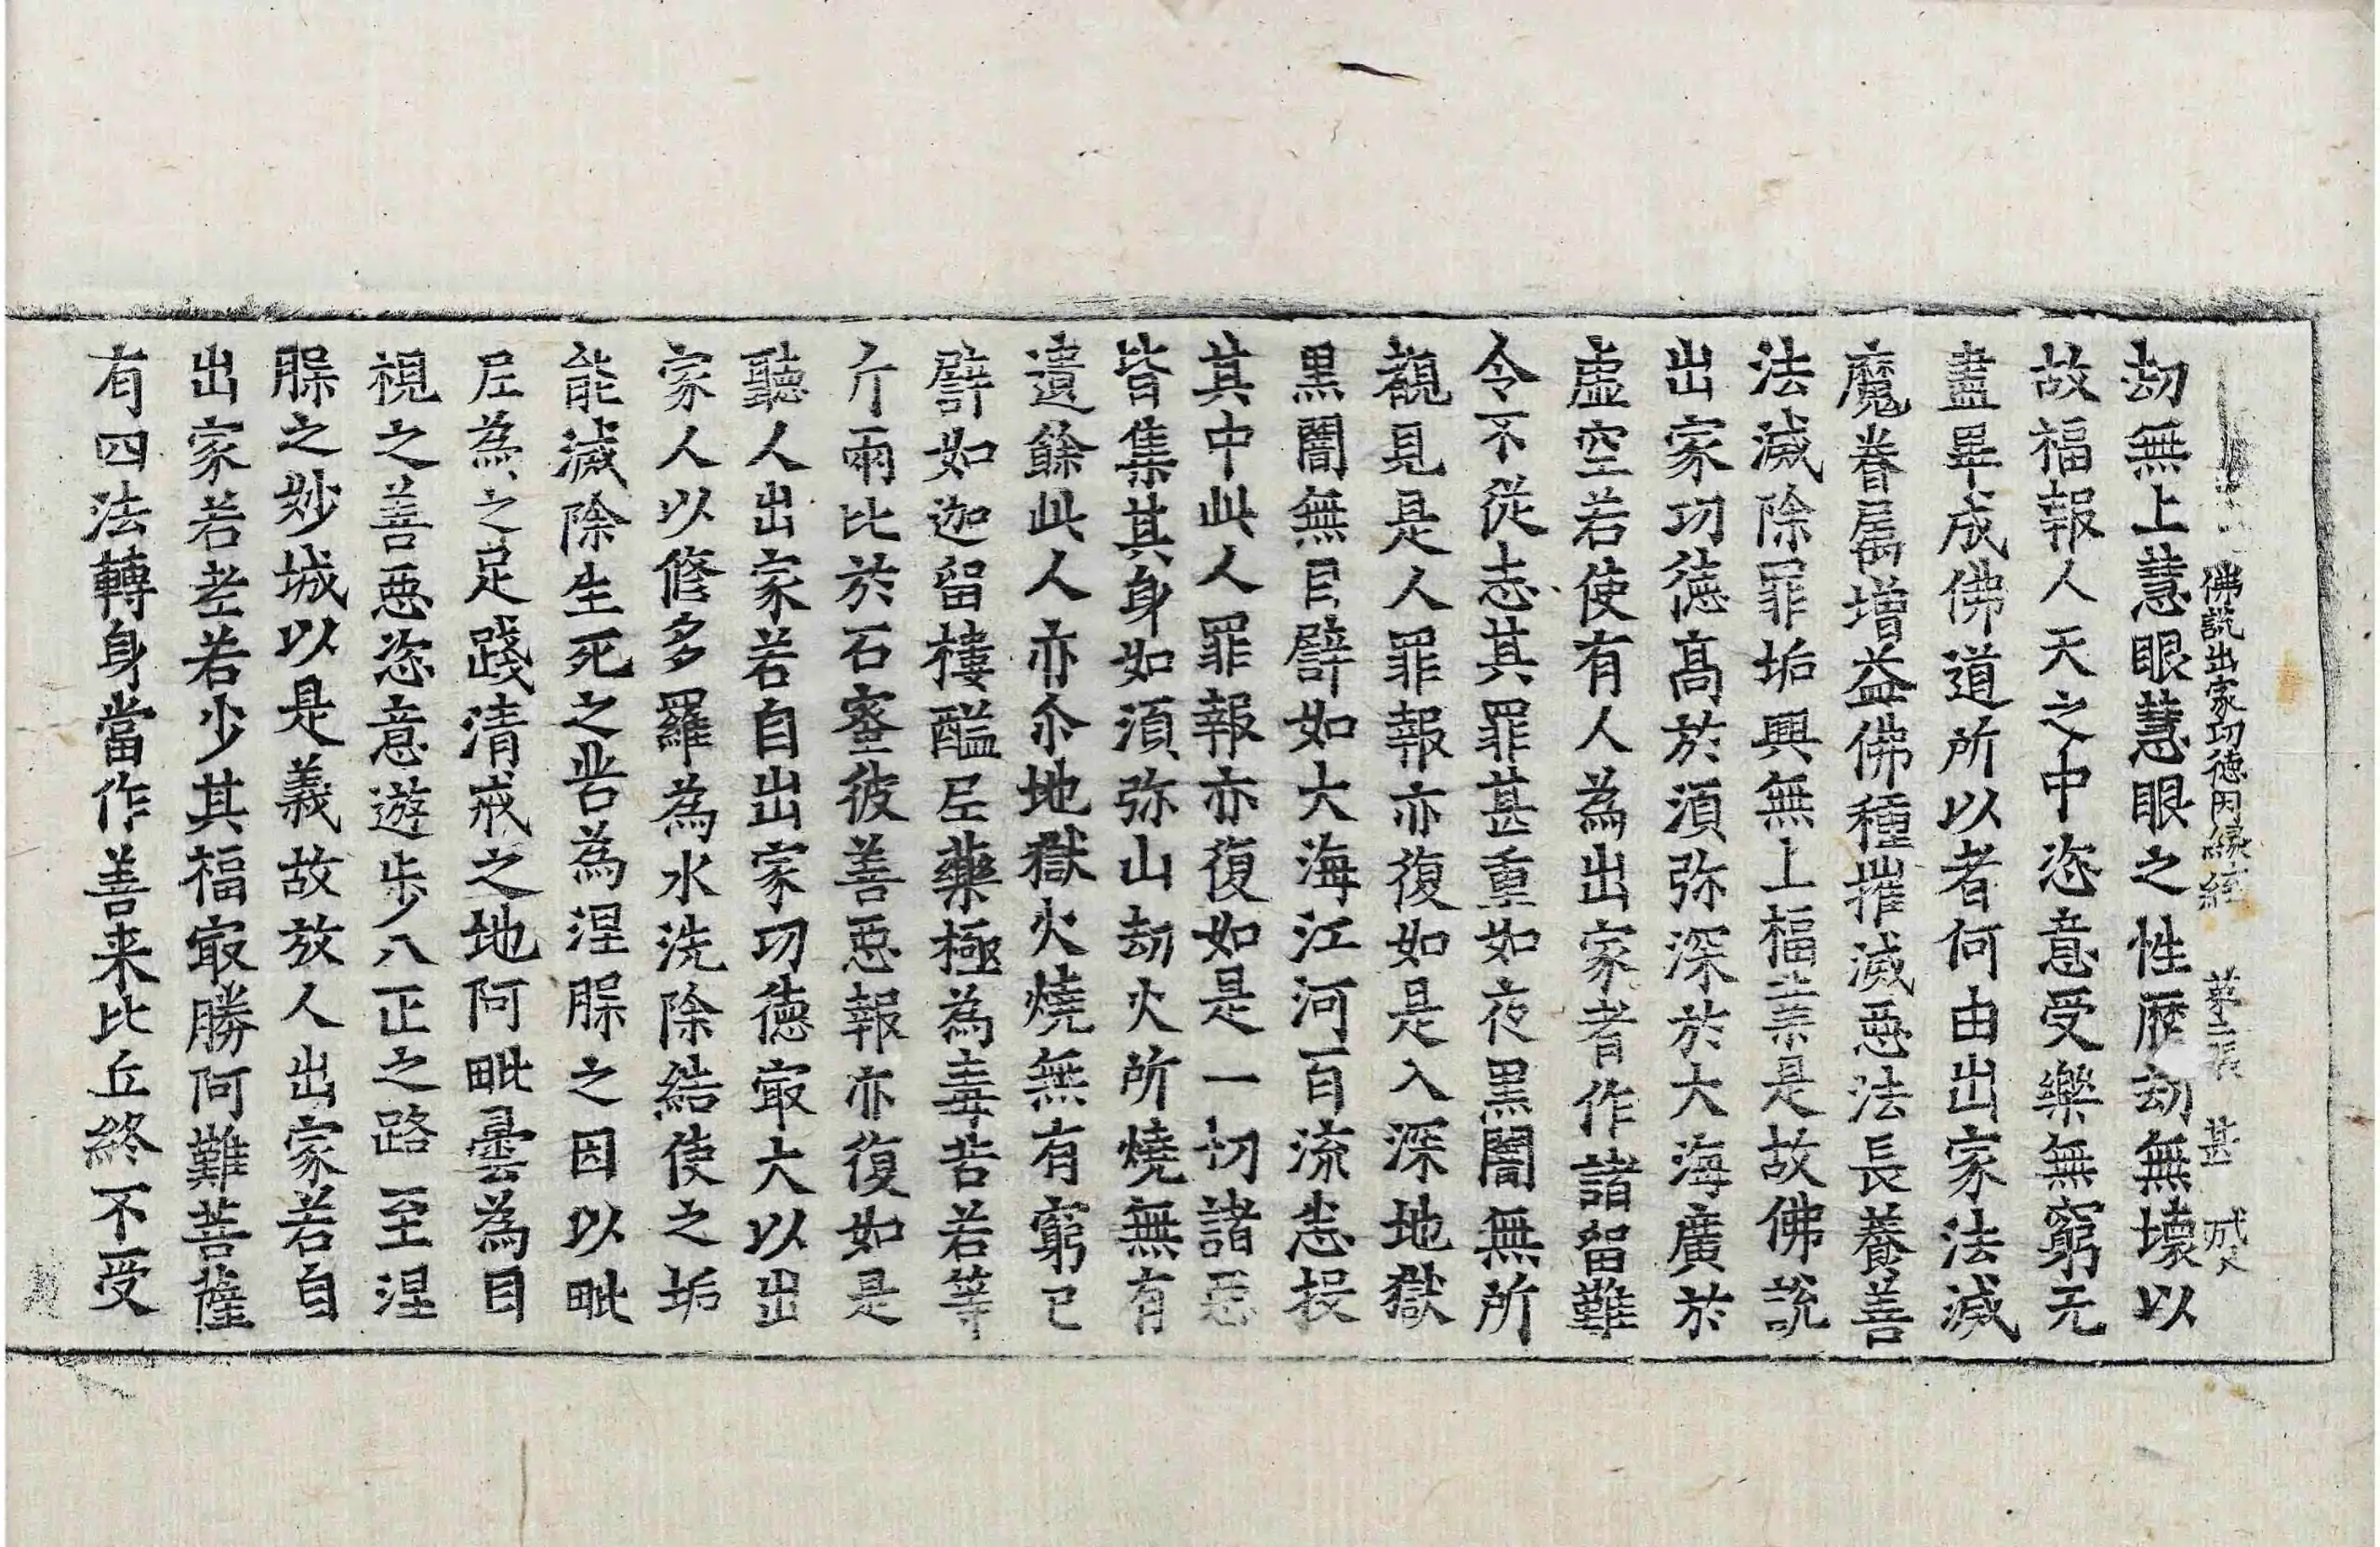 佛說出家功德因緣經 第二張 甚
劫無上慧眼慧眼之性歷劫無壞以
故福報人天之中恣意受樂無窮无
盡畢成佛道所以者何由出家法滅
魔眷屬增益佛種摧滅惡法長養善
法滅除罪垢興無上福業是故佛說
出家功德高於湏弥深於大海廣於
虛空若使有人為出家者作諸留難
令不從志其罪甚重如夜黑闇無所
覩見是人罪報亦復如是入深地獄
黒闇無目譬如大海江河百流悉投
其中此人罪報亦復如是一切諸惡
皆集其身如湏弥山劫火所燒無有
遺餘此人亦尒地獄火燒無有窮已
譬如迦留樓醯尼藥極為毒苦若等
斤兩比於石蜜彼善惡報亦復如是
聽人出家若自出家功德㝡大以出
家人以修多羅為水洗除結使之垢
能滅除生死之苦為涅縣之因以毗
尼為之足踐清戒之地阿毗曇為目
視之善惡恣意遊步八正之路至涅
縣之妙城以是義故放人出家若自
出家若老若少其福㝡勝阿難菩薩
有四法轉身當作善来比丘終不受